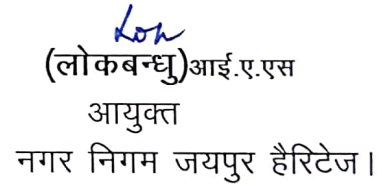 (लोकबन्धु)आई.ए.एस
आयुक्त
नगर निगम जयपुर हैरिटेज।